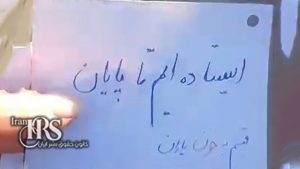 ایستاده ایم تا پایان
قسم به خون یاران
Iran
HRS
کانون حقوق بشر ایران